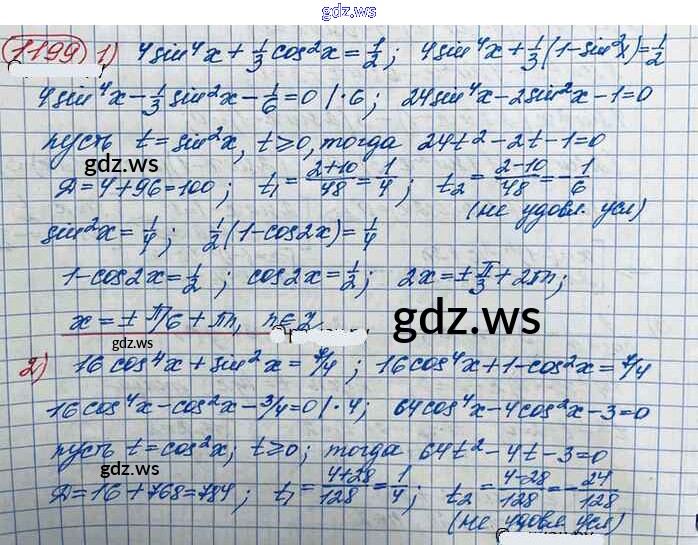 gdz.ws
1199 1) 4sin⁴x + 1/3 cos²x = 1/2; 4sin⁴x + 1/3(1-sin²x) = 1/2
4sin⁴x - 1/3 sin²x - 1/6 = 0 |·6; 24sin⁴x - 2sin²x - 1 = 0
пусть t = sin²x, t ≥ 0, тогда 24t² - 2t - 1 = 0
gdz.ws
Д = 4 + 96 = 100; t₁ = 2+10/48 = 1/4; t₂ = 2-10/48 = -1/6
(не удовл. усл)
sin²x = 1/4; 1/2(1-cos2x) = 1/4
1 - cos2x = 1/2; cos2x = 1/2; 2x = ± π/3 + 2πn;
x = ± π/6 + πn, n ∈ Z
gdz.ws
2) 16cos⁴x + sin²x = 7/4; 16cos⁴x + 1 - cos²x = 7/4
16cos⁴x - cos²x - 3/4 = 0 |·4; 64cos⁴x - 4cos²x - 3 = 0
пусть t = cos²x; t ≥ 0; тогда 64t² - 4t - 3 = 0
gdz.ws
Д = 16 + 768 = 784; t₁ = 4+28/128 = 1/4; t₂ = 4-28/128 = -24/128
(не удовл усл)